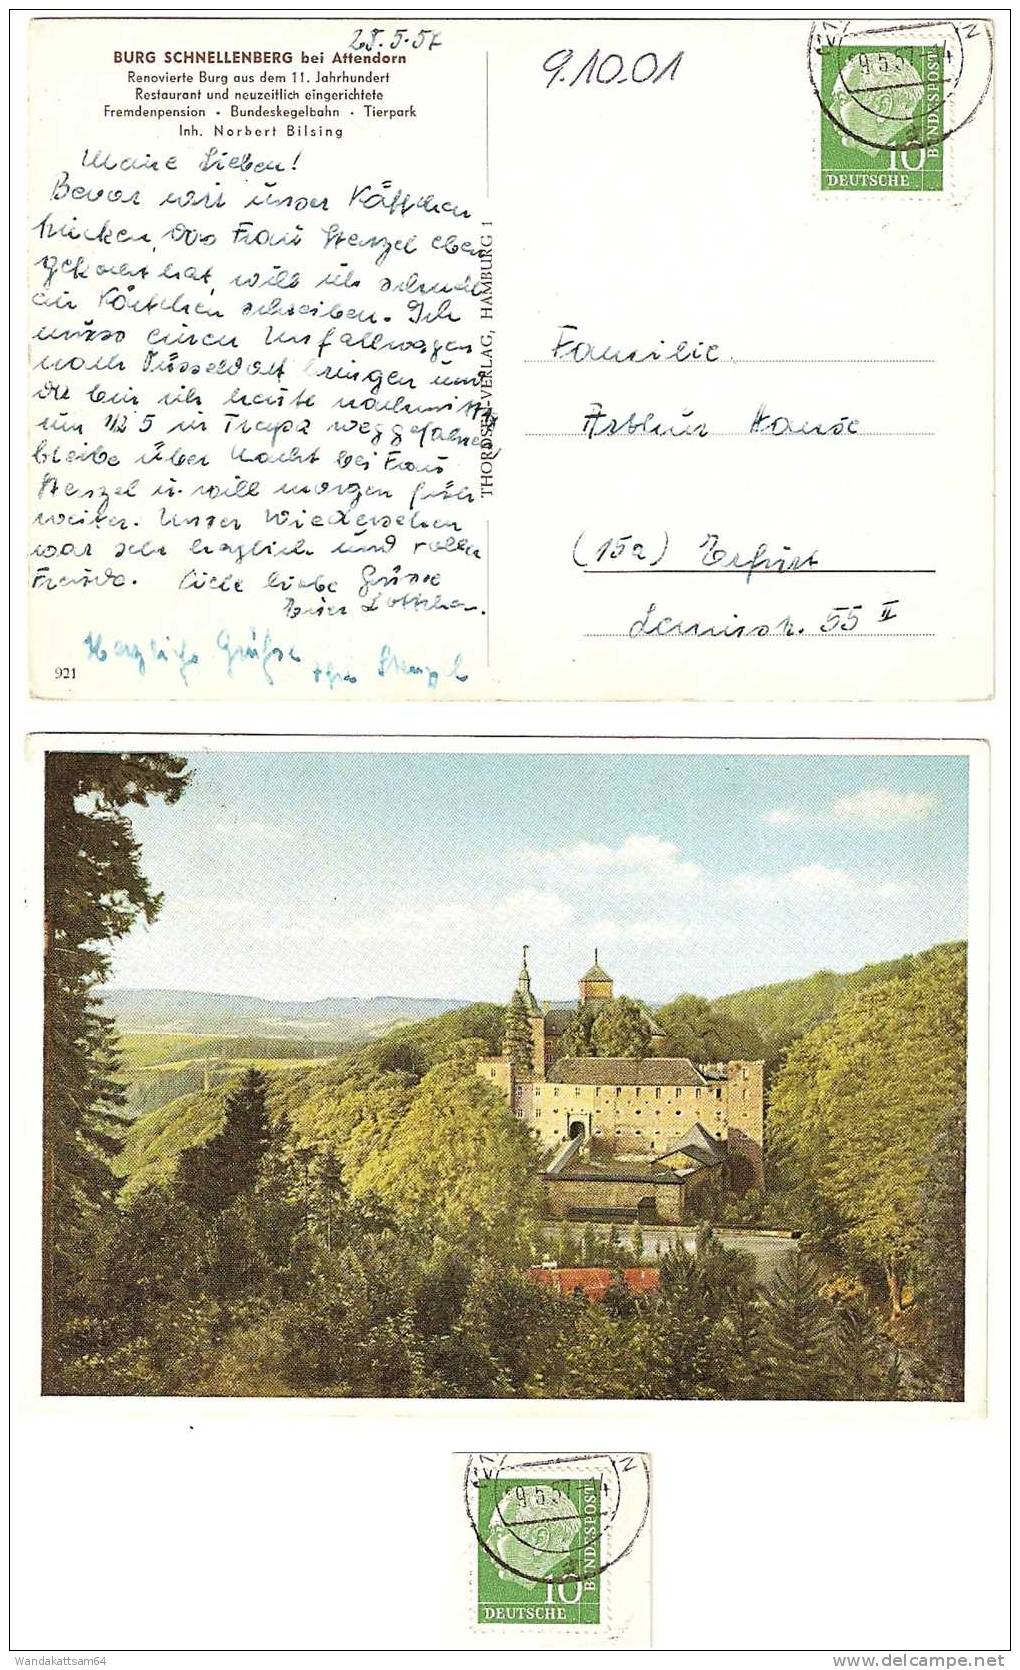 28.5.57
BURG SCHNELLENBERG bei Attendorn
Renovierte Burg aus dem 11. Jahrhundert
Restaurant und neuzeitlich eingerichtete
Fremdenpension • Bundeskegelbahn • Tierpark
Inh. Norbert Bilsing
Meine Lieben!
Bevor wir unser Käffchen
trinken, das Frau Stenzel eben
gekocht hat, will ich schnell
ein Kärtchen schreiben. Ich
muss einen Unfallwagen
nach Düsseldorf bringen und
bin ich heute nachmittag
um 1/2 5 in weggefahren
bleibe über Nacht bei Frau
Stenzel u. will morgen früh
weiter. Unser Wiedersehen
war sehr herzlich und voller
Freude. Viele liebe Grüsse
Euer Lottchen.
Herzliche Grüße Stenzel
921
THORDSEN-VERLAG, HAMBURG 1
9.10.01
9.5.57-14
10
DEUTSCHE
BUNDESPOST
Familie
Arthur Hause
(15a) Erfurt
55 II
9.5.57-14
10
DEUTSCHE
BUNDESPOST
Wandakattsam64
delcampe.net